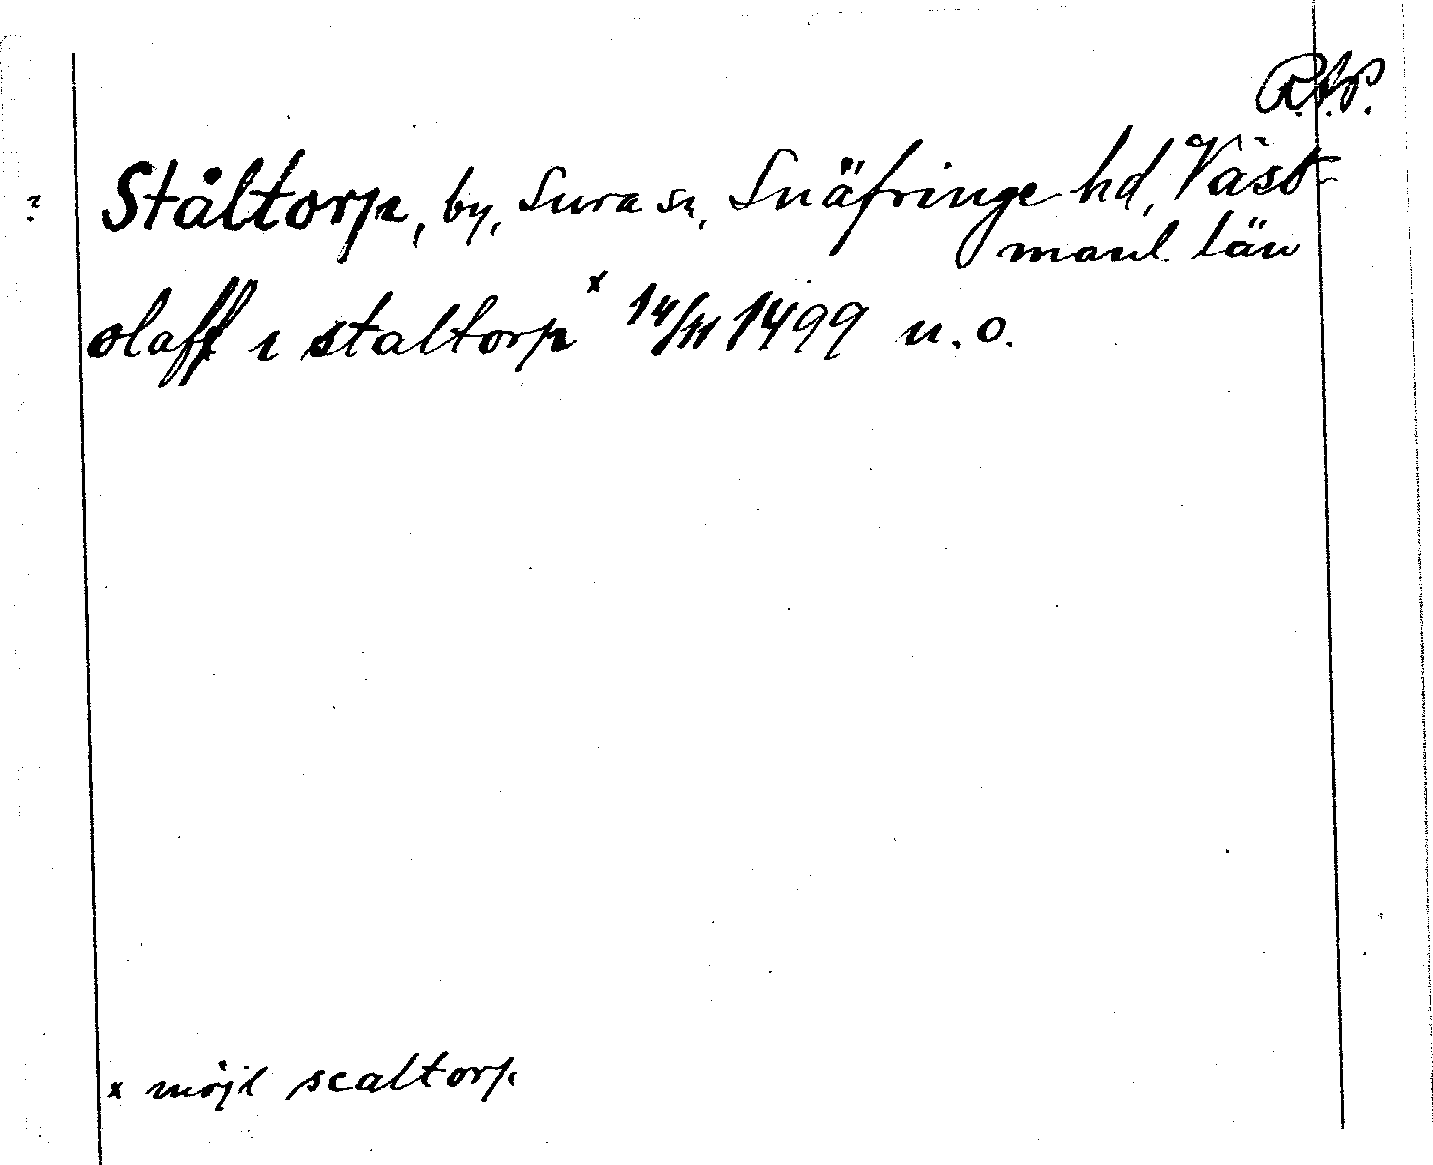 R.A.P.
? Ståltorp, by, Sura sn, Snäfringe hd, Väst-
manl. län
olaff i staltorp x 14/11 1499 u.o.
x möjl scaltorp